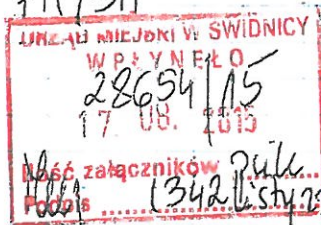 URZĄD MIEJSKI W ŚWIDNICY
WPŁYNĘŁO
28654/15
17 08. 2015
Ilość załączników
Podpis (342 listy